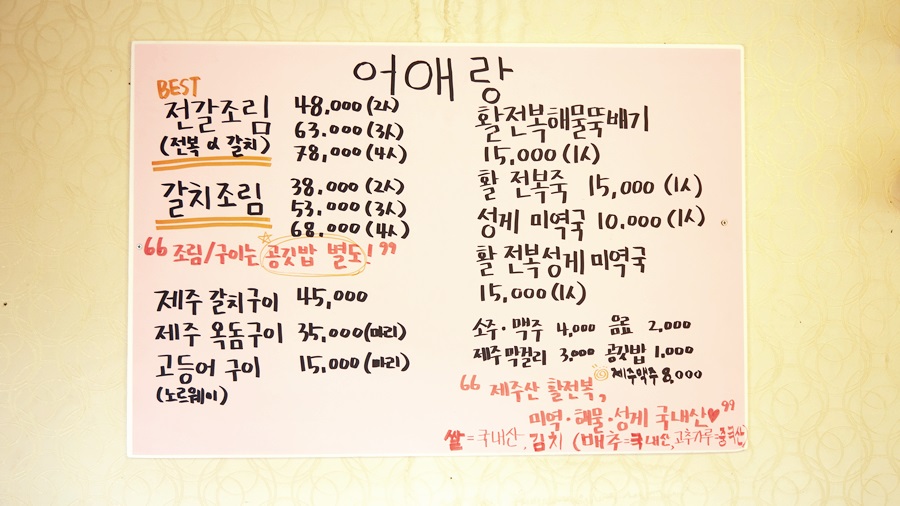 어애랑
BEST
전갈조림 48,000 (2人)
(전복 & 갈치) 63.000 (3人)
78,000 (4人)
갈치조림 38.000 (2人)
53.000 (3人)
68.000 (4人)
“조림/구이는 공깃밥 별도!”
제주 갈치구이 45,000
제주 옥돔구이 35,000 (마리)
고등어 구이 15,000 (마리)
(노르웨이)
활전복해물뚝배기
15,000 (1人)
활 전복죽 15,000 (1人)
성게 미역국 10.000 (1人)
활 전복성게 미역국
15,000 (1人)
소주·맥주 4,000 음료 2,000
제주막걸리 3,000 공깃밥 1,000
제주맥주 8,000
“제주산 활전복,
미역·해물·성게 국내산♥”
쌀=국내산, 김치 (배추=국내산, 고추가루=중국산)